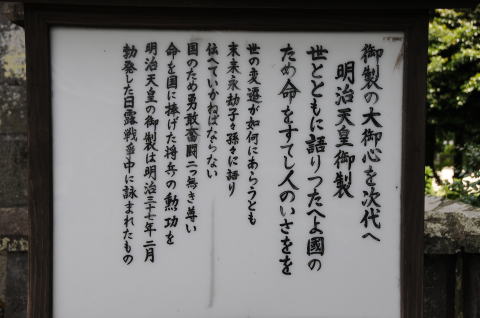 御製の大御心を次代へ
明治天皇御製
世とともに語りつたへよ國の
ため命をすてし人のいさをを
世の変遷が如何にあらうとも
末来永劫子々孫々に語り
伝へていかねばならない
国のため勇敢奮闘二つ無き尊い
命を国に捧げた将兵の勲功を
明治天皇の御製は明治三十七年二月
勃発した日露戦争中に詠まれたもの